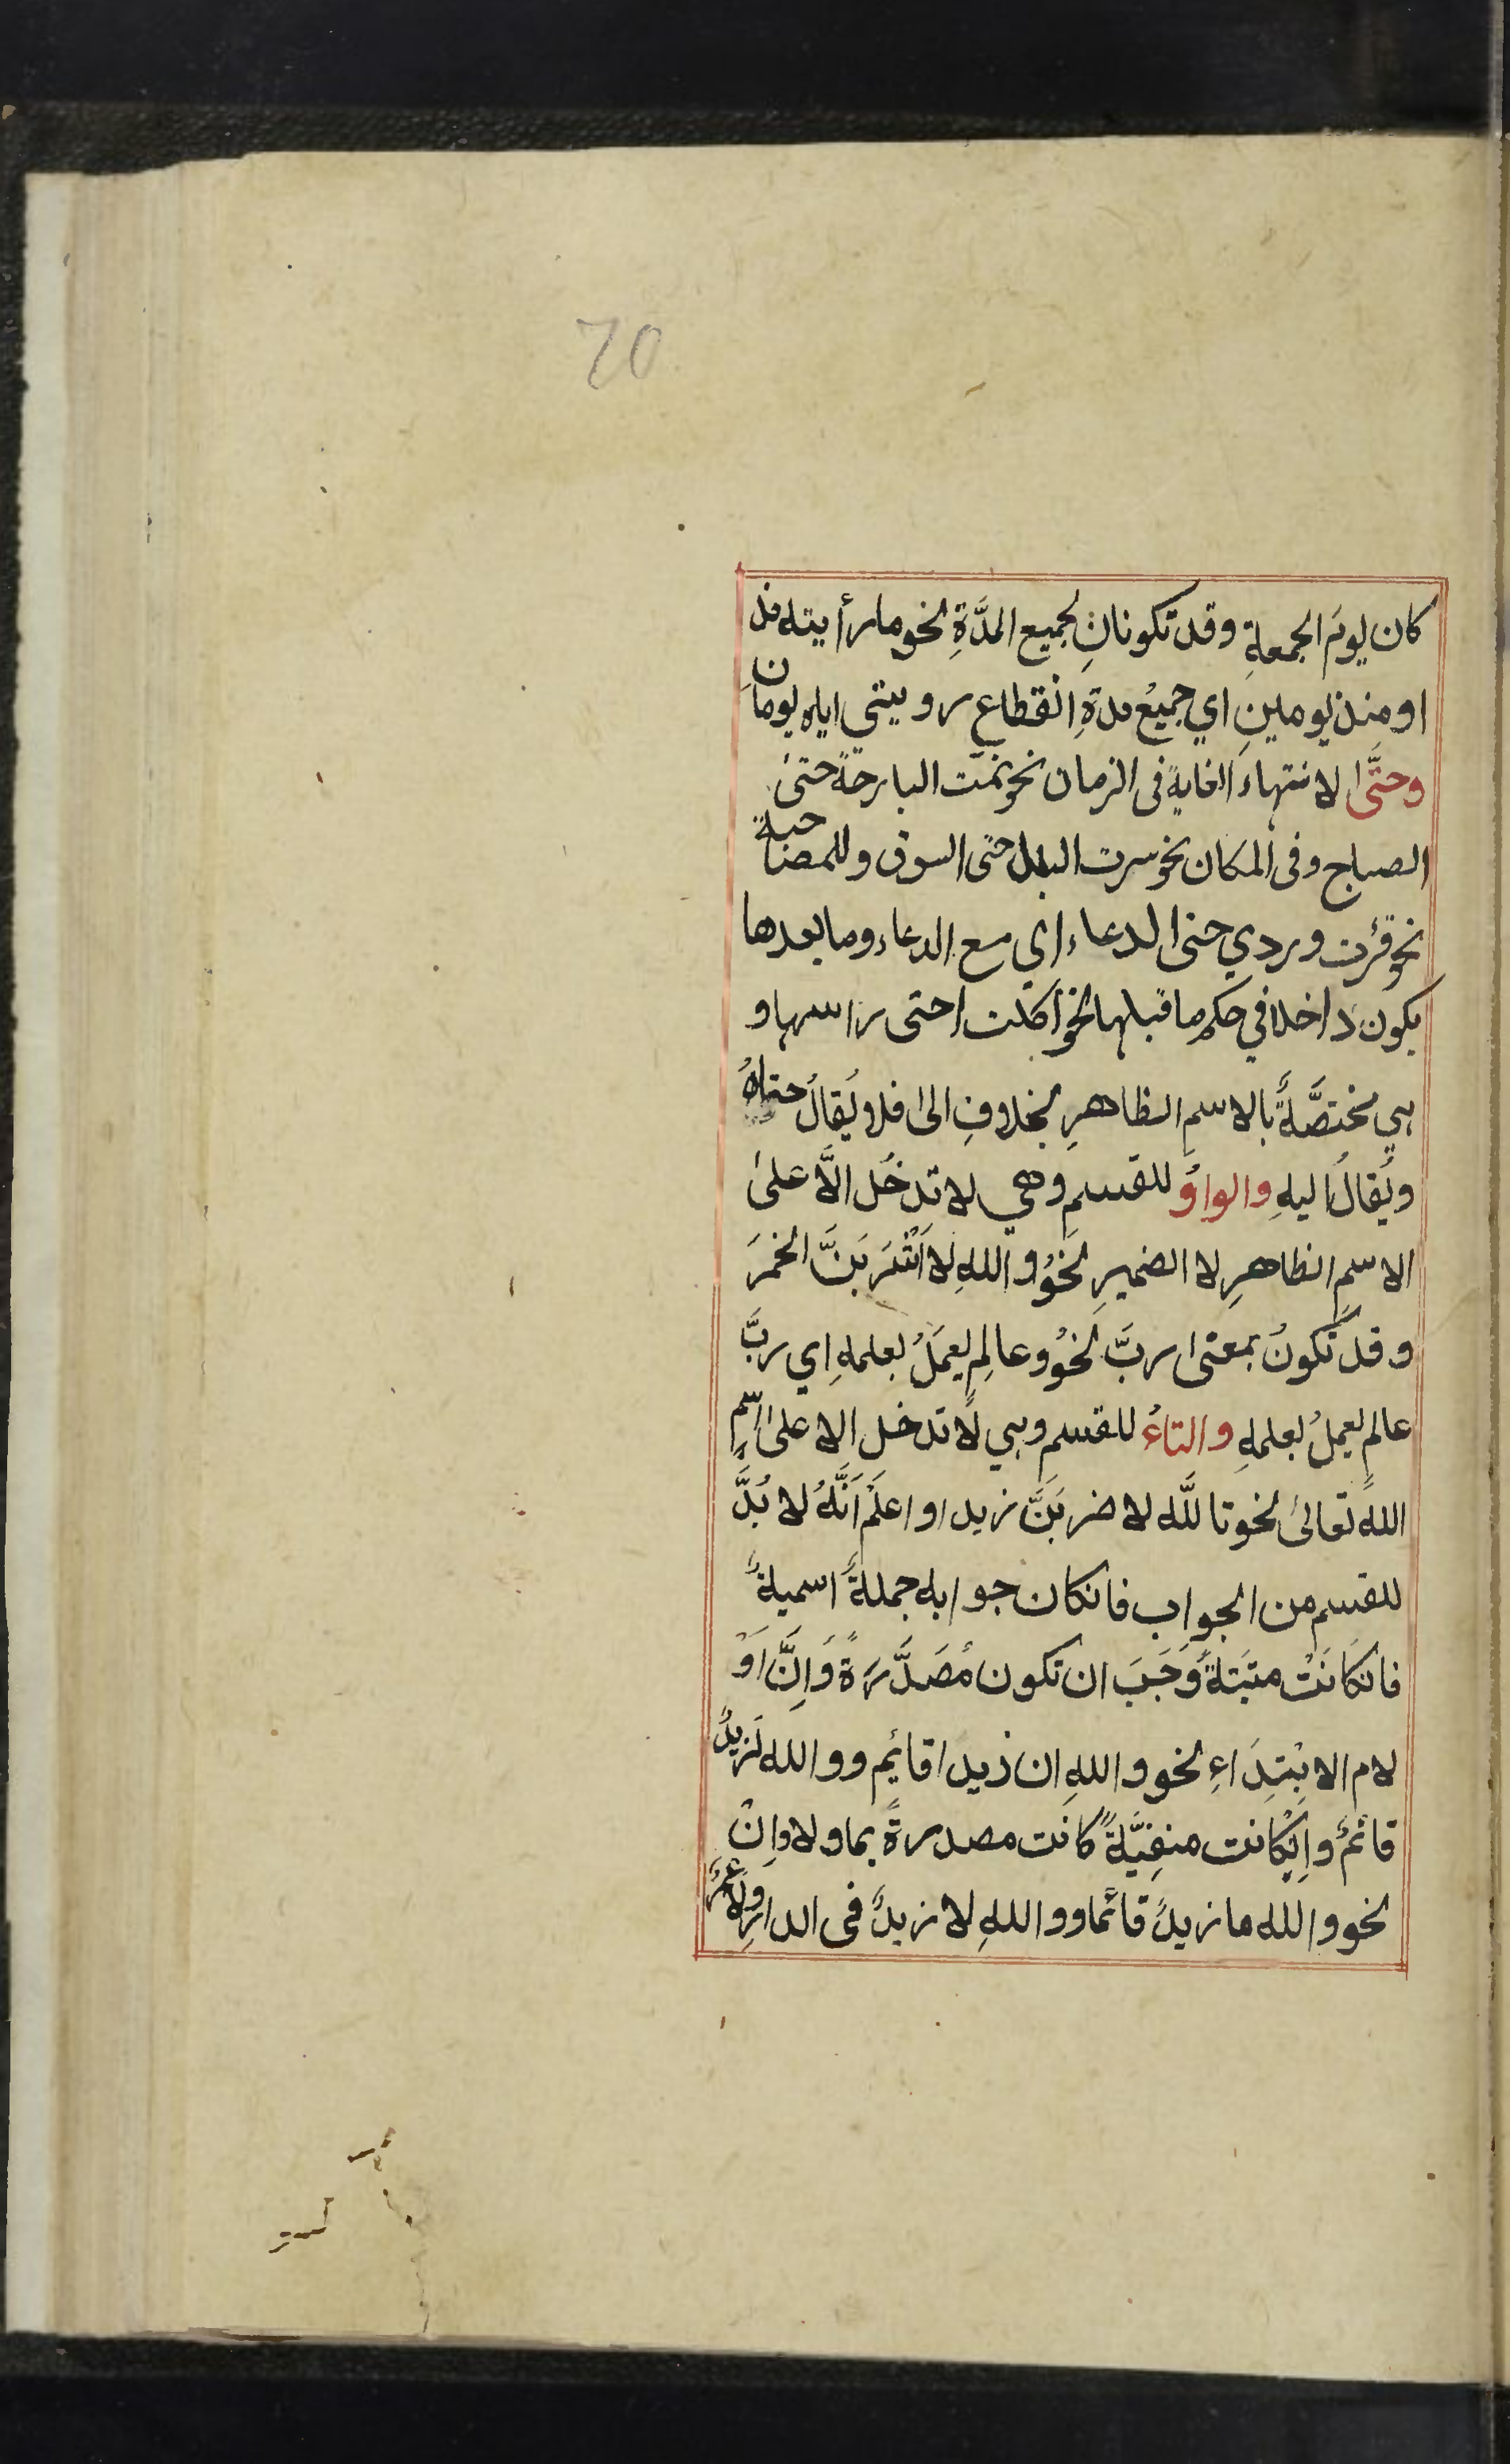 70
كان يومَ الجمعةِ وقد تكونانِ لجميع المدَّةِ نحو ما رأيته مذ
او منذ يومينِ اي جميعُ مدةِ انقطاعِ رويتى اياه يومانِ
وحتَّى لانتهاءَ الغايةِ فى الزمان نحو نمت البارحةَ حتىٰ
الصباح وفى المكان نحو سرت البلد حتى السوق وللمصاحبة
نحو قرأت وردي حتى الدعاء اي مع الدعاء وما بعدها
يكون داخلا في حكم ما قبلها نحو اكلت حتى راسها و
هي مختصَّةٌ بالاسمِ الظاهرِ بخلافِ الىٰ فلا يُقالُ حتاهُ
ويُقالُ اليهِ والواوُ للقسمِ وهي لا تدخُل الَّا علىٰ
الاسمِ الظاهرِ لا الضميرِ نحوُ واللهِ لا اَشْرَبَنَّ الخمرَ
وقد تكونُ بمعنى ربَّ نحوُ وعالِمٍ يعمَلُ بعلمهِ اي ربَّ
عالمٍ يعملُ بعلمهِ والتاءُ للقسم وهي لا تدخل الا علىٰ اسمِ
اللهِ تعالىٰ نحو تاللّٰه لاضربَنَّ زيدا واعلَمْ اَنَّهُ لا بُدَّ
للقسم من الجواب فانكان جوابه جملةً اسميةً
فانكانَتْ مثبتةً وَجَبَ ان تكون مُصَدَّرَةً وَاِنَّ اَوْ
لام الابْتِدَاءِ نحو واللهِ ان زيدا قائِم وواللّه لَزيدٌ
قائمٌ وانكانت منفِيَّةً كانت مصدرةً بما ولا واِنْ
نحو والله ما زيدٌ قائما وواللهِ لا زيدٌ فى الدارِ ولَا عمرٌ